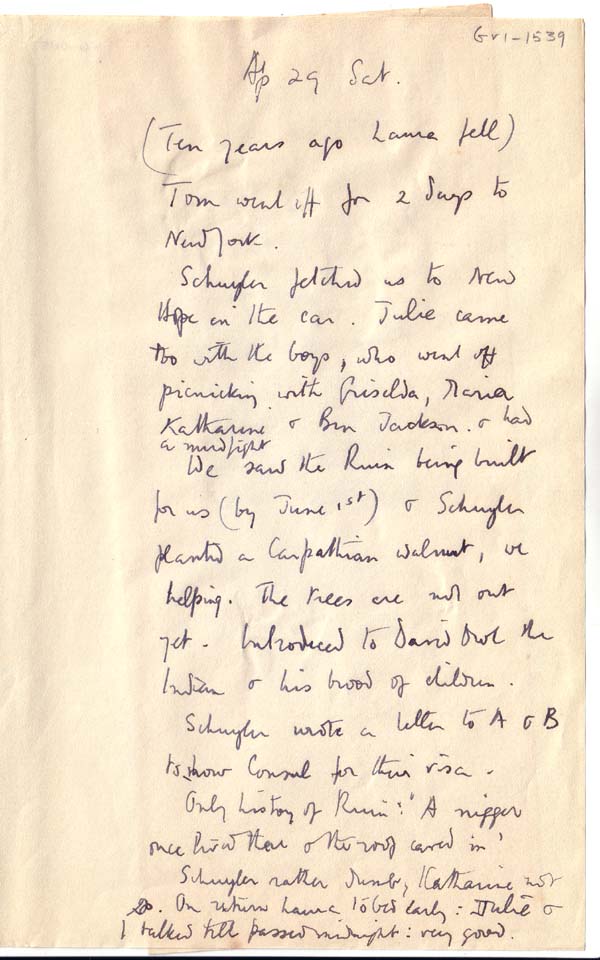 Gr1-1539
Ap 29 Sat.
(Ten years ago Laura fell)
Tom went off for 2 days to
New York.
Schuyler fetched us to New
Hope in the car. Julie came
too with the boys, who went off
picnicking with Griselda, Maria
Katharine & Ben Jackson. & had
a mudfight
We saw the Ruin being built
for us (by June 1st) & Schuyler
planted a Carpathian walnut, we
helping. The trees are not out
yet. Introduced to David Owl the
Indian & his brood of children.
Schuyler wrote a letter to A & B
to show Consul for their visa.
Only history of Ruin: 'A nigger
once lived there & the roof caved in'
Schuyler rather dumb, Katharine not
so. On return Laura to bed early: Julie &
I talked till passed midnight: very good.